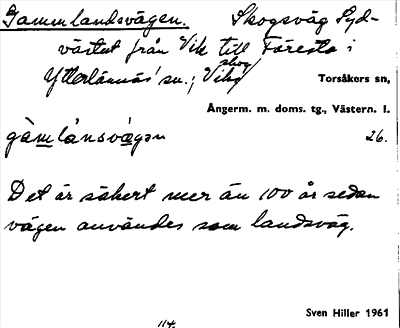 Gammlandsvägen. Skogsväg syd-
västut från Vik till Föresta i
Ytterlännäs' sn.; Viks skog
Torsåkers sn,
Ångerm. m. doms. tg., Västern. l.
gàmlánsvægən 26.
Det är säkert mer än 100 år sedan
vägen användes som landsväg.
Sven Hiller 1961
114.